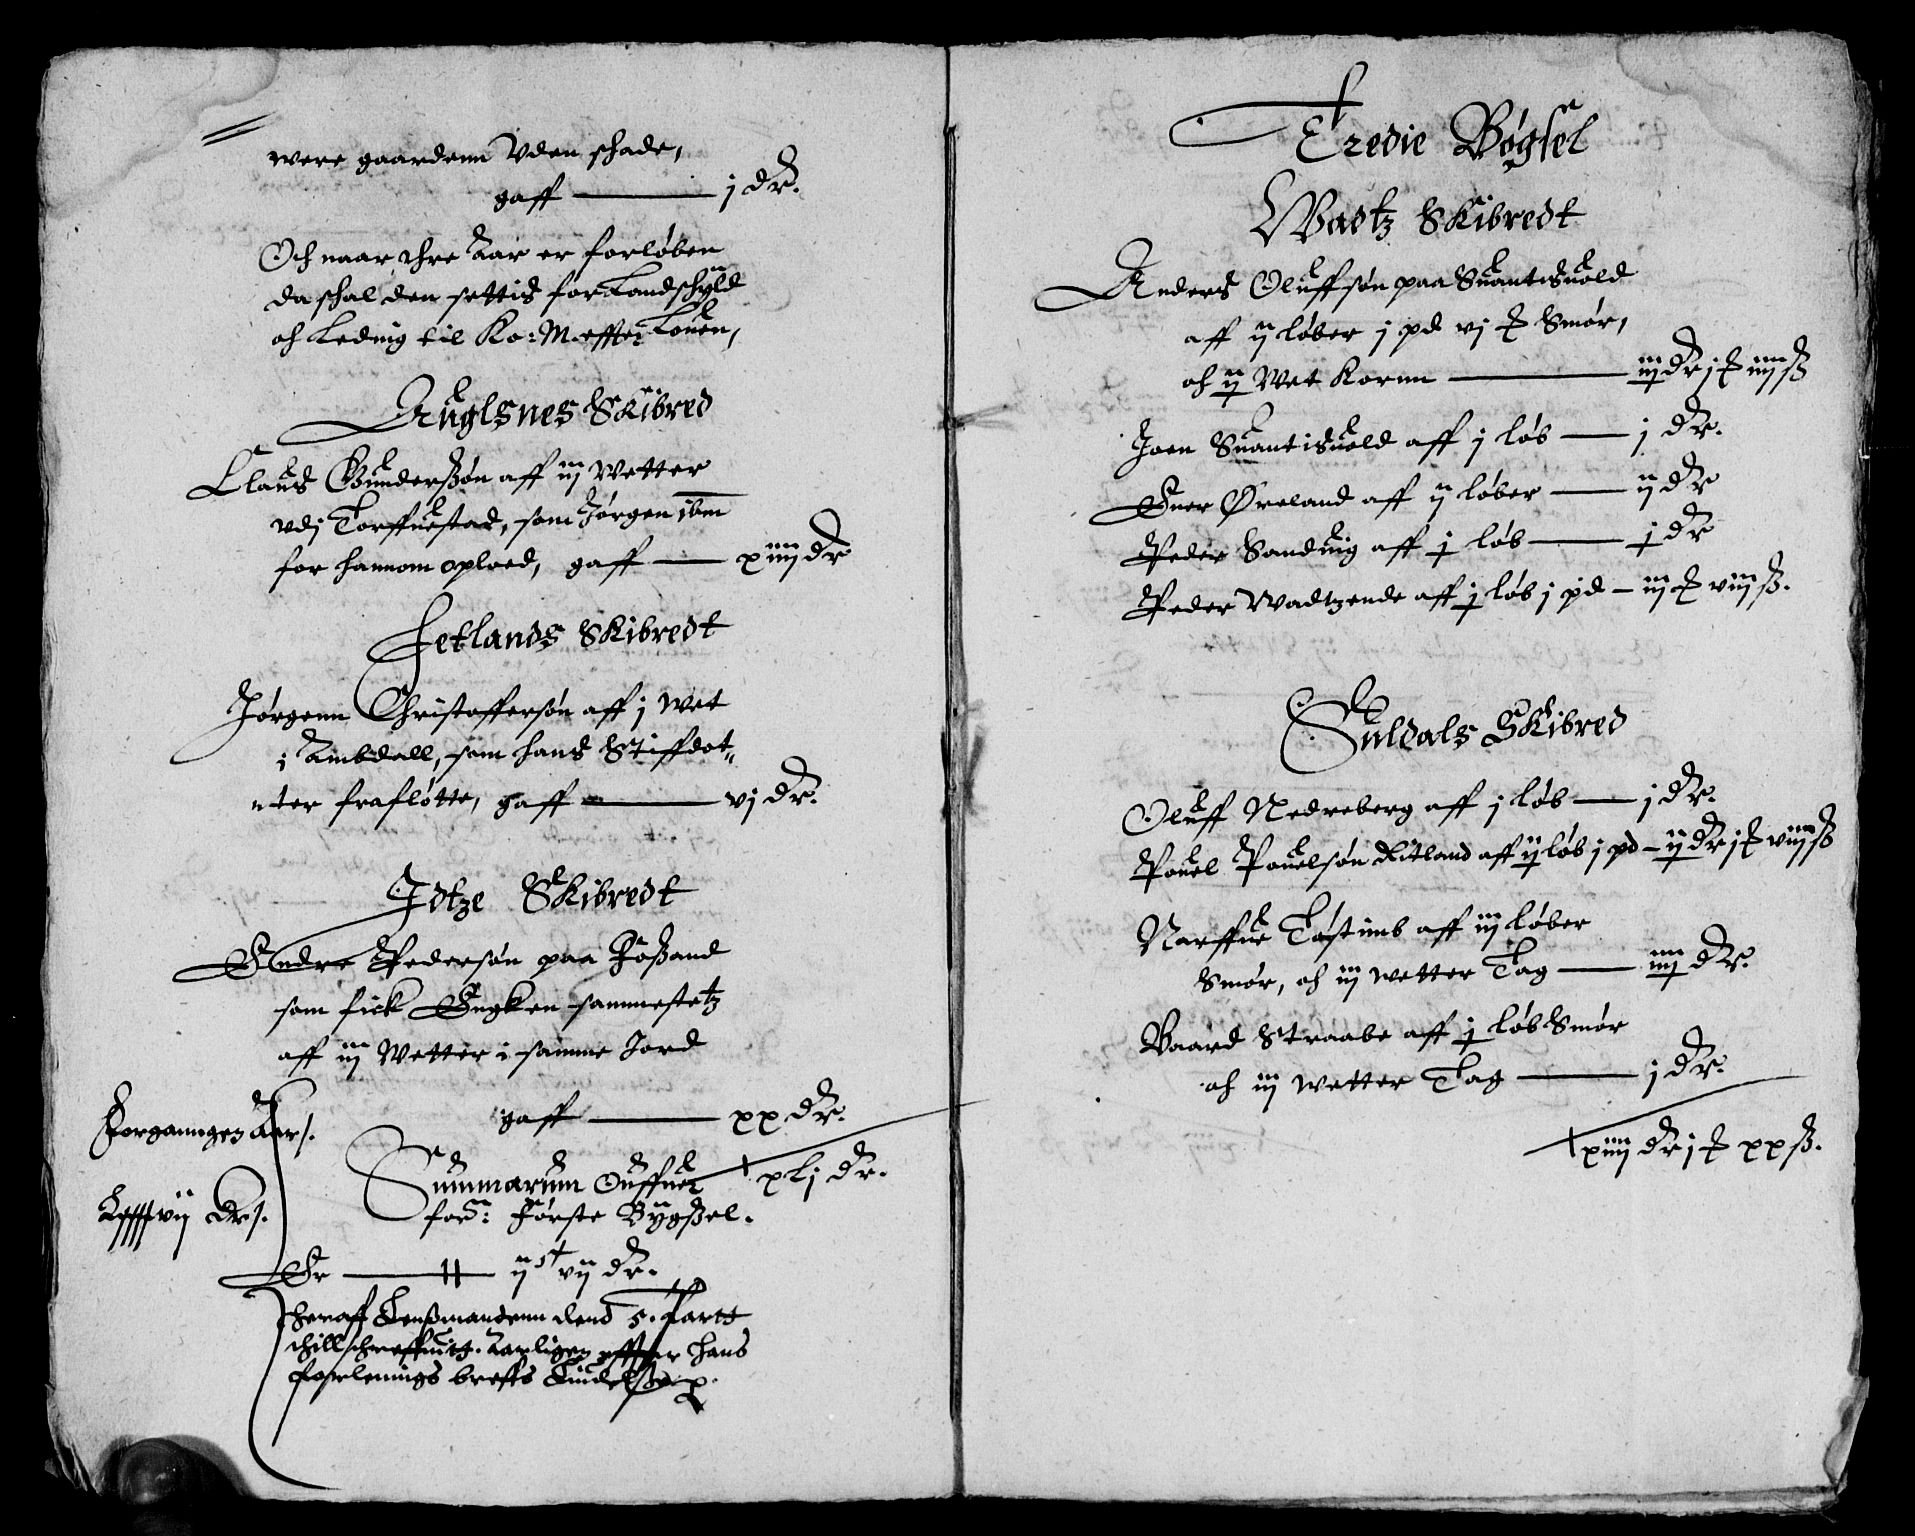 were gaardenn Vden schade,
gaff j dr.
Och naar thre Aar er forløben
da schal den settis for Landschyld
och Leding til Ko: M. effter Louen,
Auglsnes Skibred
Claus Gunderßøn aff iij Wetter
vdj Torffuestad, som Jørgen ibm
for hannom oploed, gaff xiiij dr
Jetlands Skibredt
Jørgenn Christoffersøn aff j Wet
i Ambdall, som hans Stiffdot-
ter frafløtte, gaff vj dr.
Jdtze Skibredt
Endre Pedersøn paa Foßand
som fick Engken sammestetz
aff iij Wetter i samme Jord
gaff xx dr.
Forganngen Aar
Summarum Ouffuer xlj dr.
for: Første Bygßel.
Er ij st vij dr.
heraff Lenßmandenn dend 5. Part
Aarligen effter hans
forlenings breffs
Tredie Bøgsel
Wadtz Skibredt
Anders Oluffsøn paa Suantisuold
aff ij løber j pd vj Smør,
och ij Wet Kornn iij dr j iiij ß
Joen Suantisuold aff j løb j dr.
Ener Øreland aff ij løber ij dr
Peder Sanduig aff j løb j dr
Peder Wadtzende aff j løb j pd iij viij ß.
Suldals Skibred
Oluff Nedreberg aff j løb j dr.
Pouel Pouelsøn Ritland aff ij løb j pd ij dr j viij ß
Narffue Tøstimb aff iij løber
Smør, och iij wetter Tag iiij dr.
Baard Straabe aff j løb Smør
och iij wetter Tag j dr.
xiiij dr j xx ß.